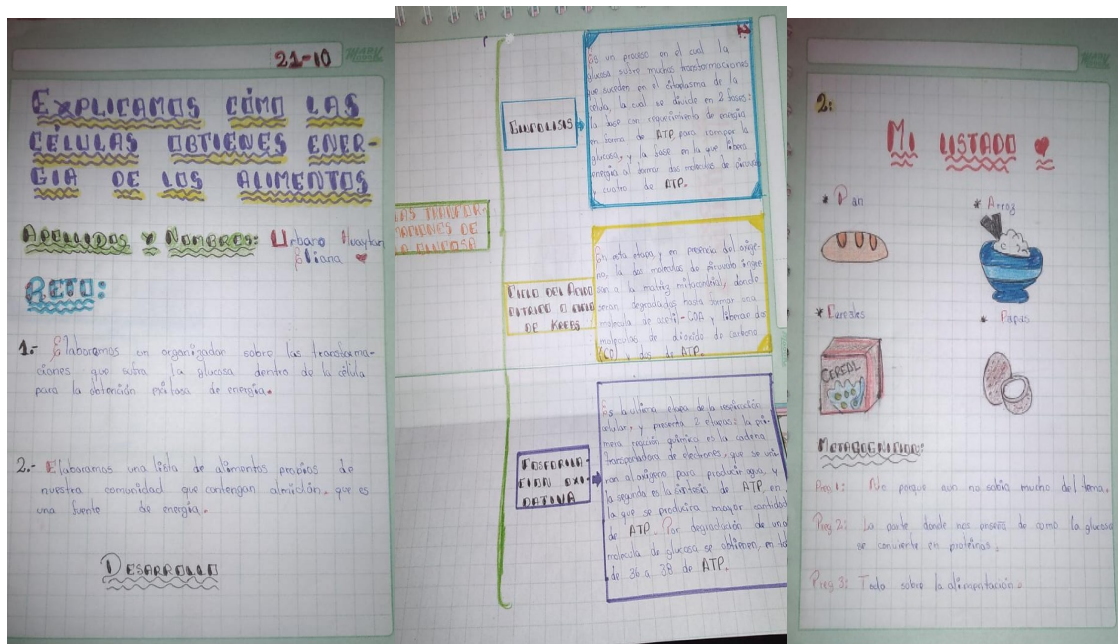 21-10
EXPLICAMOS CÓMO LAS
CÉLULAS OBTIENES ENER-
GIA DE LOS ALIMENTOS
APELLIDOS Y NOMBRES: Urbano Huaytan
Eliana
RETO:
1.- Elaboramos un organizador sobre las transforma-
ciones que sufra la glucosa dentro de la célula
para la obtención de energía.
2.- Elaboramos una lista de alimentos propios de
nuestra comunidad que contengan almidón, que es
una fuente de energía.
DESARROLLO
LAS TRANSFOR-
MACIONES DE
LA GLUCOSA
GLUCOLISIS
Es un proceso en el cual la
glucosa sufre muchas transformaciones
que suceden en el citoplasma de la
célula, la cual se divide en 2 fases:
la fase con requerimiento de energía
en forma de ATP para romper la
glucosa, y la fase en la que libera
energía al formar dos moleculas de piruvato
y cuatro de ATP.
CICLO DEL ÁCIDO
CITRICO O CICLO
DE KREBS
En esta etapa, y en presencia del oxige-
no, la dos moleculas de piruvato ingre
san a la matriz mitocondrial, donde
seran degradadas hasta formar una
molecula de acetil-COA y liberan dos
moleculas de dioxido de carbono
(CO) y dos de ATP.
FOSFORILA-
CION OXI-
DATIVA
Es la ultima etapa de la respiración
celular, y presenta 2 etapas: la pri-
mera reacción química es la cadena
transportadora de electrones, que se uni-
ran al oxigeno para producir agua, y
la segunda es la sintesis de ATP, en
la que se producira mayor cantidad
de ATP. Por degradación de una
molecula de glucosa se obtienen, en to
de 36 a 38 de ATP.
2:
MI LISTADO
* Pan
* Arroz
* Cereales
* Papas
CEREAL
METACOGNICION:
Preg 1: No porque aún no sabía mucho del tema.
Preg 2: La parte donde nos enseña de como la glucosa
se convierte en proteinas.
Preg 3: Todo sobre la alimentación.